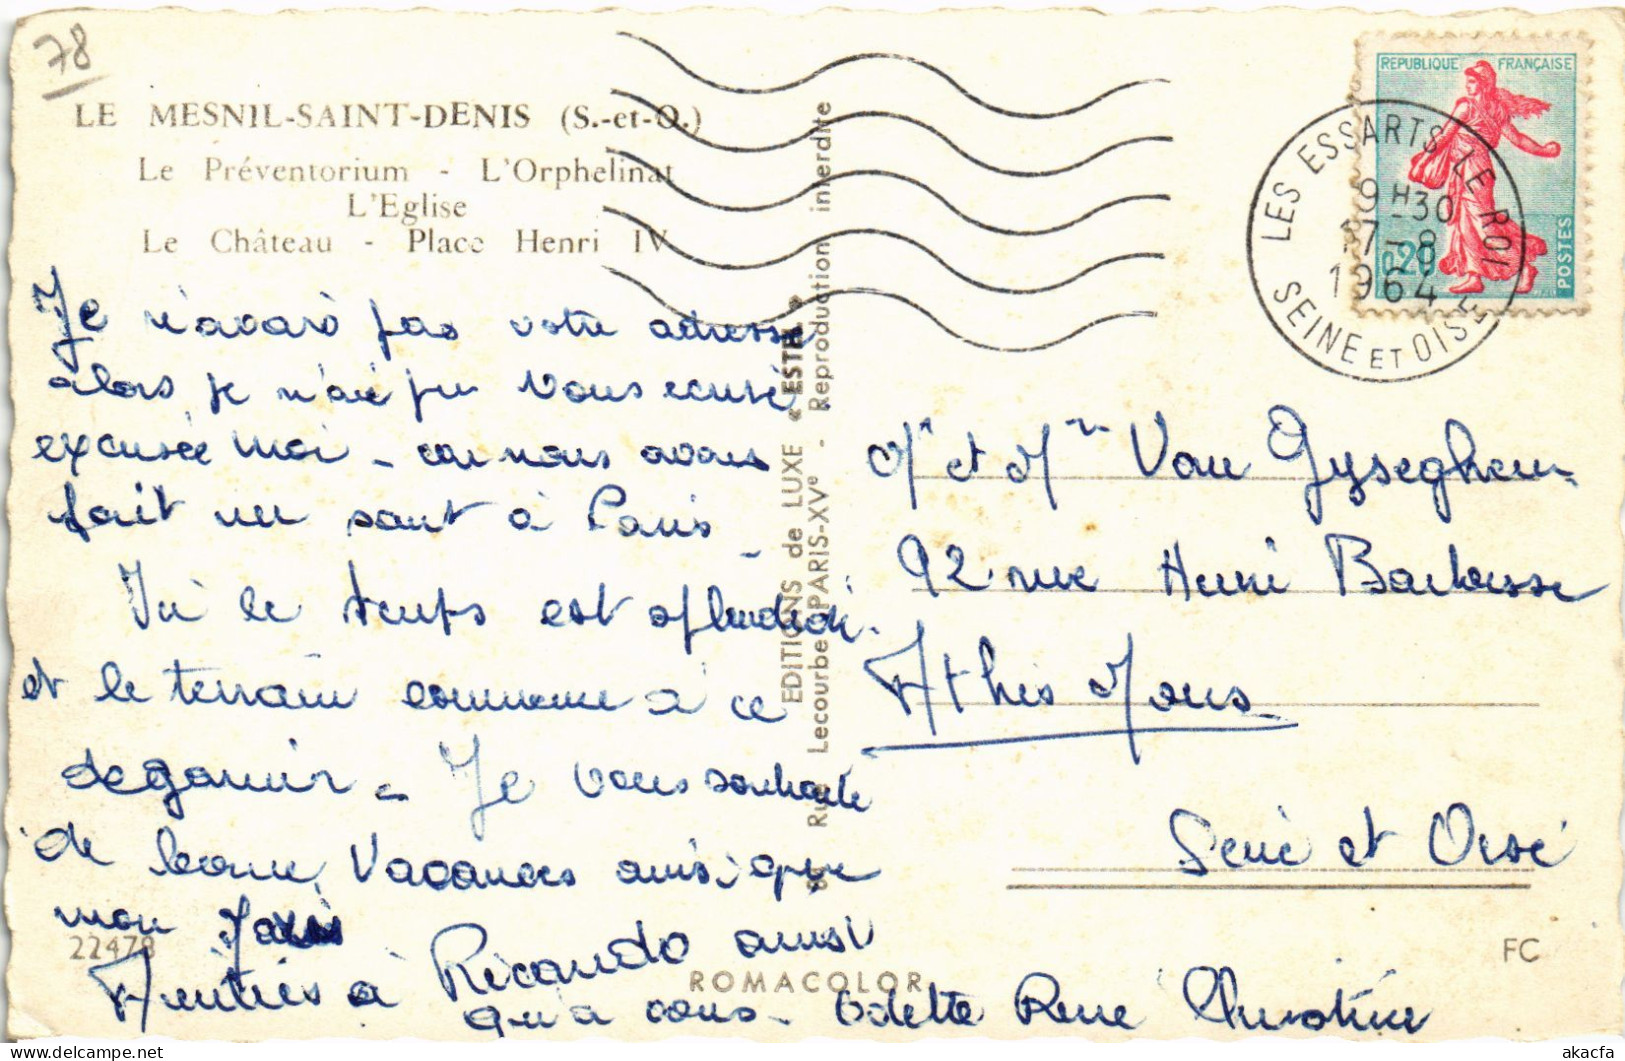 78
LE MESNIL-SAINT-DENIS (S.-et-O.)
Le Préventorium - L'Orphelinat
L'Eglise
Le Château - Place Henri IV
Je n'avais pas votre adresse
alors je n'ai pu vous
excusée moi - car nous avons
fait un saut à Paris
Ici le temps est splendide
et le terrain commence à ce
degarnir - Je vous souhaite
de bonne Vacances ainsi que
mon
Amitiés à Ricardo ainsi
qu'a vous - Odette René Christine
22478
ROMACOLOR
FC
EDITIONS de LUXE « ESTEL »
Rue Lecourbe, PARIS-XVe - Reproduction interdite
REPUBLIQUE FRANÇAISE
0,20
POSTES
LES ESSARTS LE ROI
9H30
17-8
1964
SEINE ET OISE
Mr et Mme Van Gyseghem
92 rue Henri Barbusse
Athis Mons
Seine et Oise
akacfa